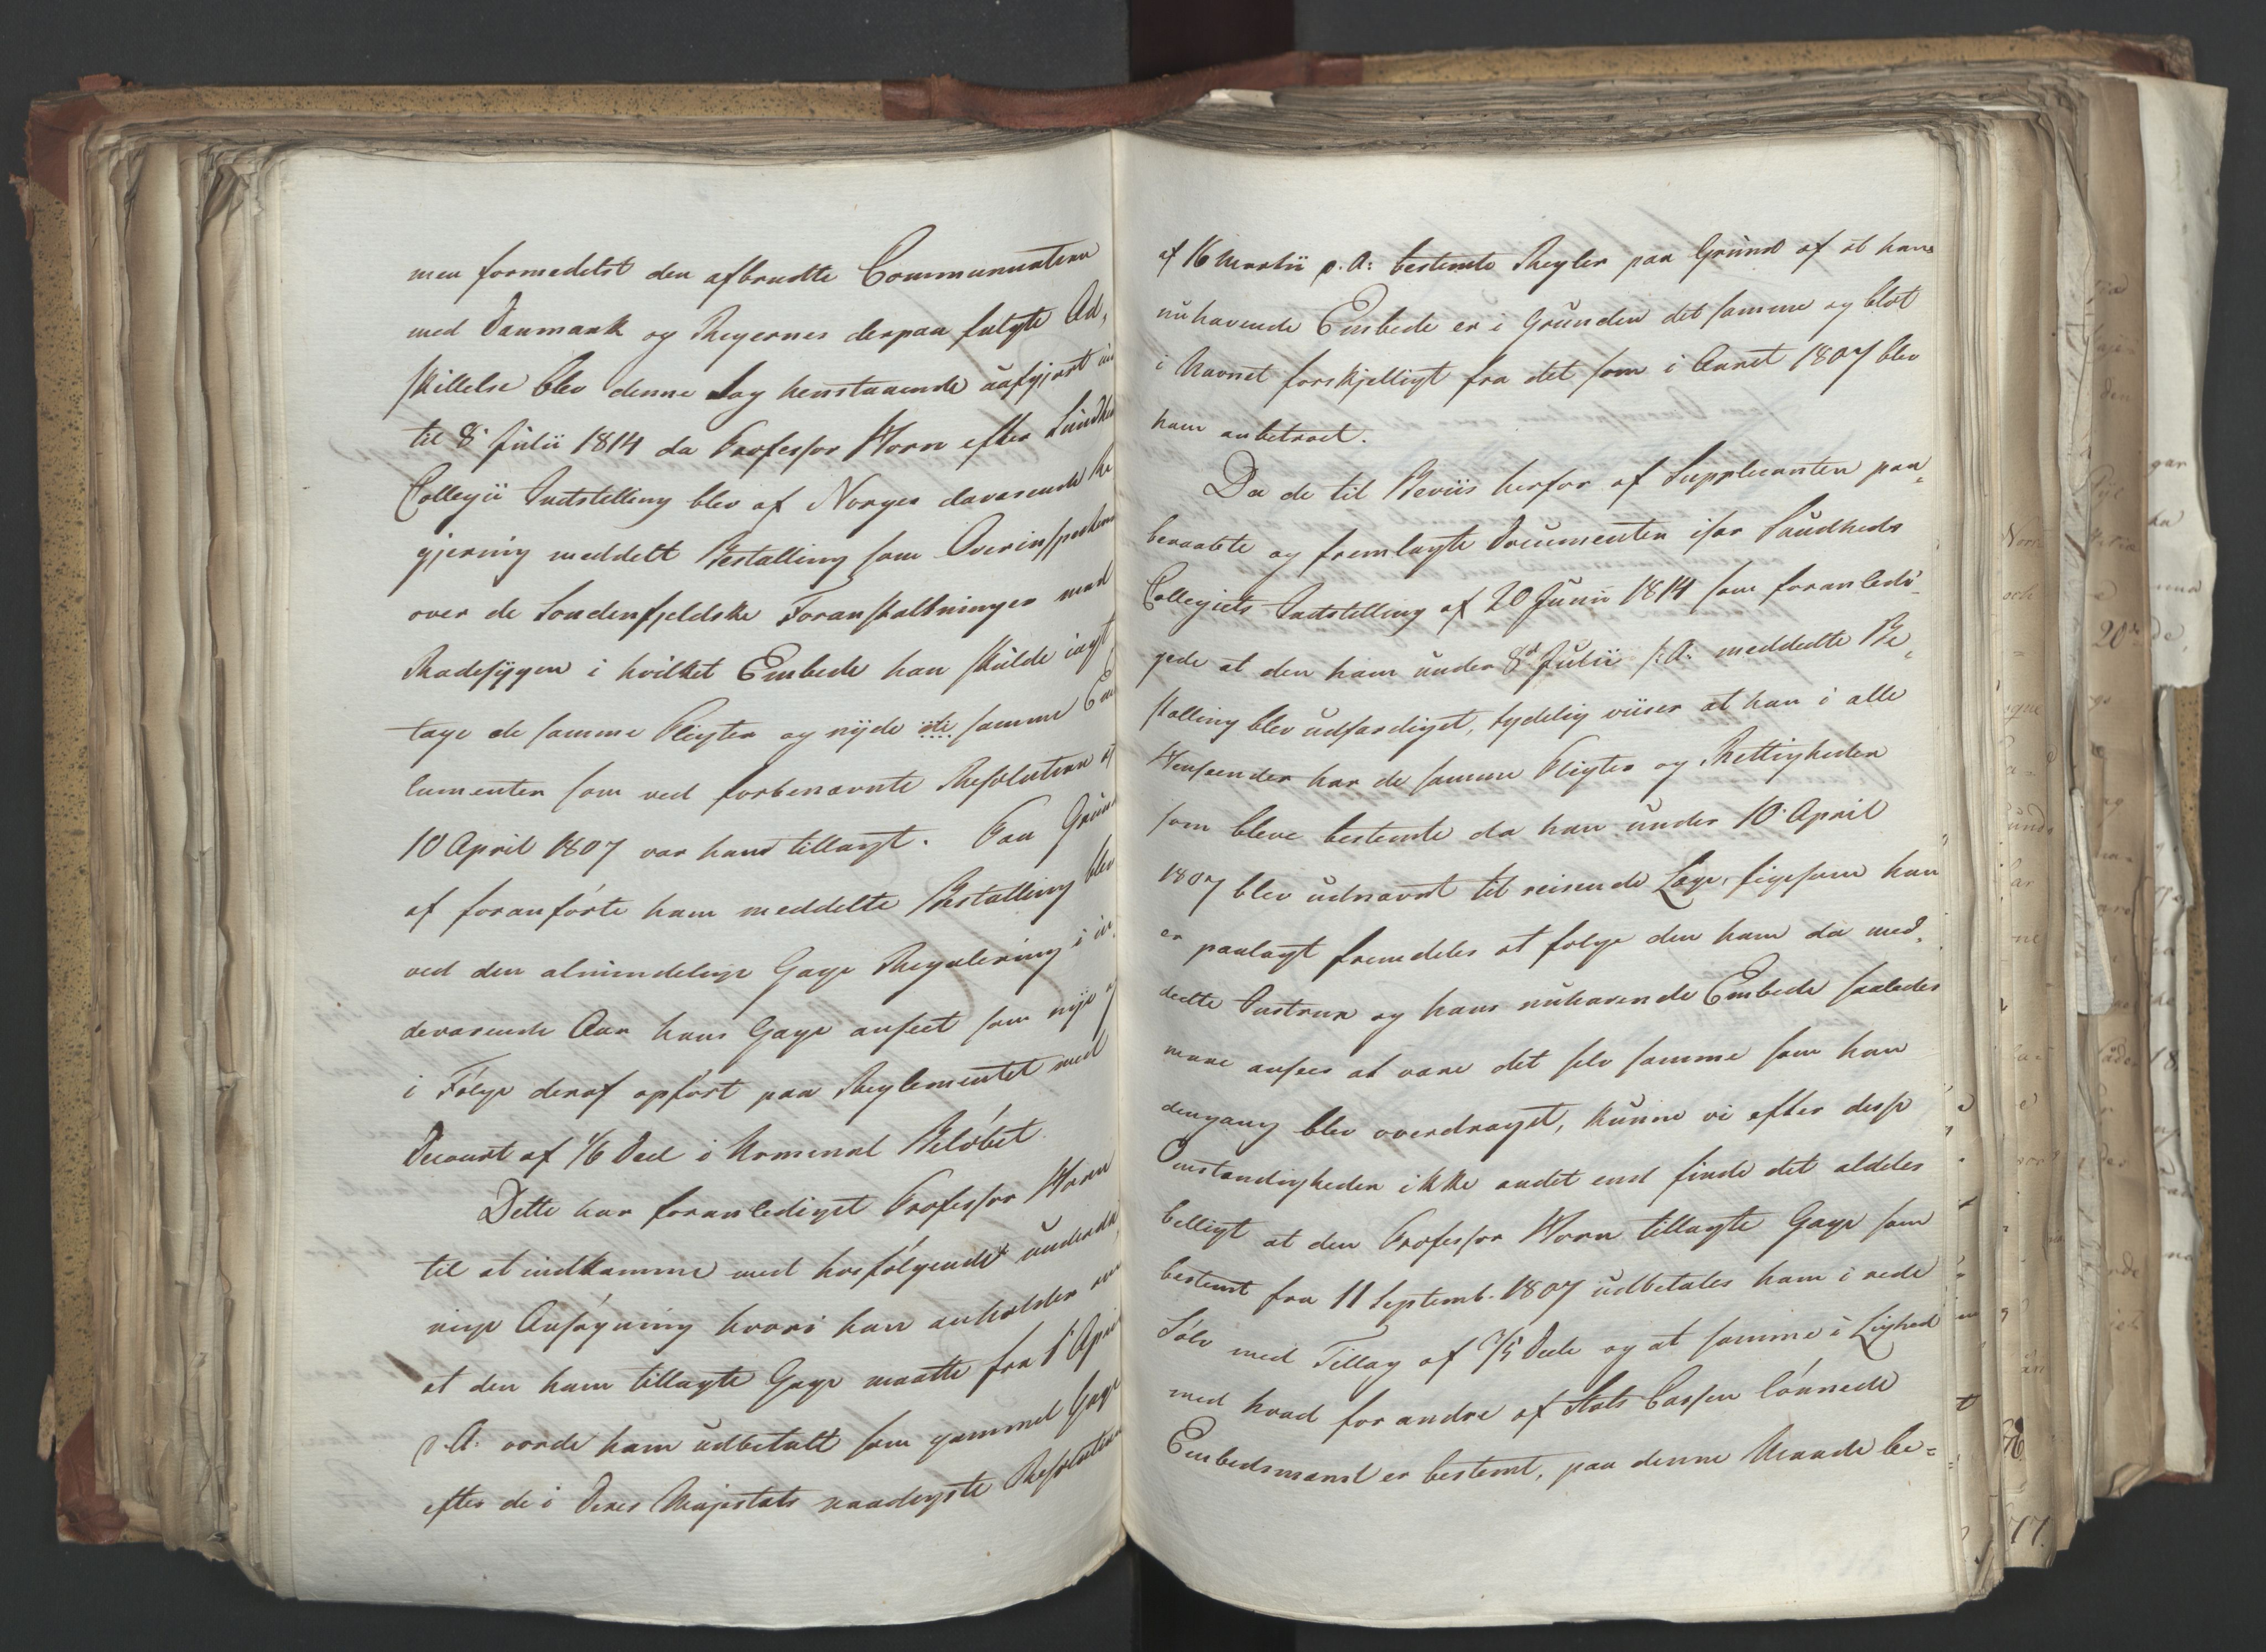 men formedelst den afbrudte Communication
med Danmark og Regjernes derpaa fulgte Ad,
skillelse blev denne Sag henstaaende uafgjort in
til 8de Julii 1814 da Professor Horn efter Sundhe
Collegii Indstilling blev af Norges daværende Re
gjering meddelt Bestalling som Overinspecteur
over de Søndenfjeldske Foranstaltninger mod
Radesygen i hvilket Embede han skulde iagt
tage de samme Pligter og nyde de samme Emo
lumenter som ved forbenævnte Resolution af
10 April 1807 var hans tillagt. Paa Grund
af foranførte ham meddelte Bestalling blev
ved den almindelige Gage Regulering i in,
deværende Aar hans Gage anseet som nye og
i Følge deraf opført paa Reglementet med
Decourt af 1/6 Deel i Nominal Beløbet
Dette har foranlediget Professor Horn
til at indkomme med hosfølgende underda
nige Ansøgning hvori han anholder om
at den ham tillagte Gage maatte fra 1 April
d. A: vorde ham udbetalt som gammel Gage
efter de i Deres Majestæts naadigste Resolution
af 16 Martii d. A: bestemte Regler paa Grund af at hans
nuhavende Embede er i Grunden det samme og blot
i Navnet forskjelligt fra det som i Aaret 1807 blev
ham anbetroet.
Da de til Beviis herfor af Supplicanten paa„
beraabte og fremlagte Documenter især Sundheds
Collegiets Indstilling af 20 Junii 1814 som foranledi¬
gede at den ham under 8de Julii s: A: meddelte Be„
stalling blev udfærdiget, tydelig viser at han i alle
Henseender har de samme Pligter og Rettigheder
som bleve bestemte da han under 10 April
1807 blev udnævnt til reisende Læge, ligesom han
er paalagt fremdeles at følge den ham da med„
deelte Instrux og hans nuhavende Embede saaledes
maae ansees at være det selv samme som han
dengang blev overdraget, kunne vi efter disse
Omstændigheder ikke andet end finde det aldeles
billigt at den Professor Horn tillagte Gage som
bestemt fra 11 Septemb. 1807 udbetales ham i rede
Sølv med Tillæg af 2/5 Dele og at samme i Lighed
med hvad for andre af Stats Cassen lønnede
Embedsmænd er bestemt, paa denne Maade be=